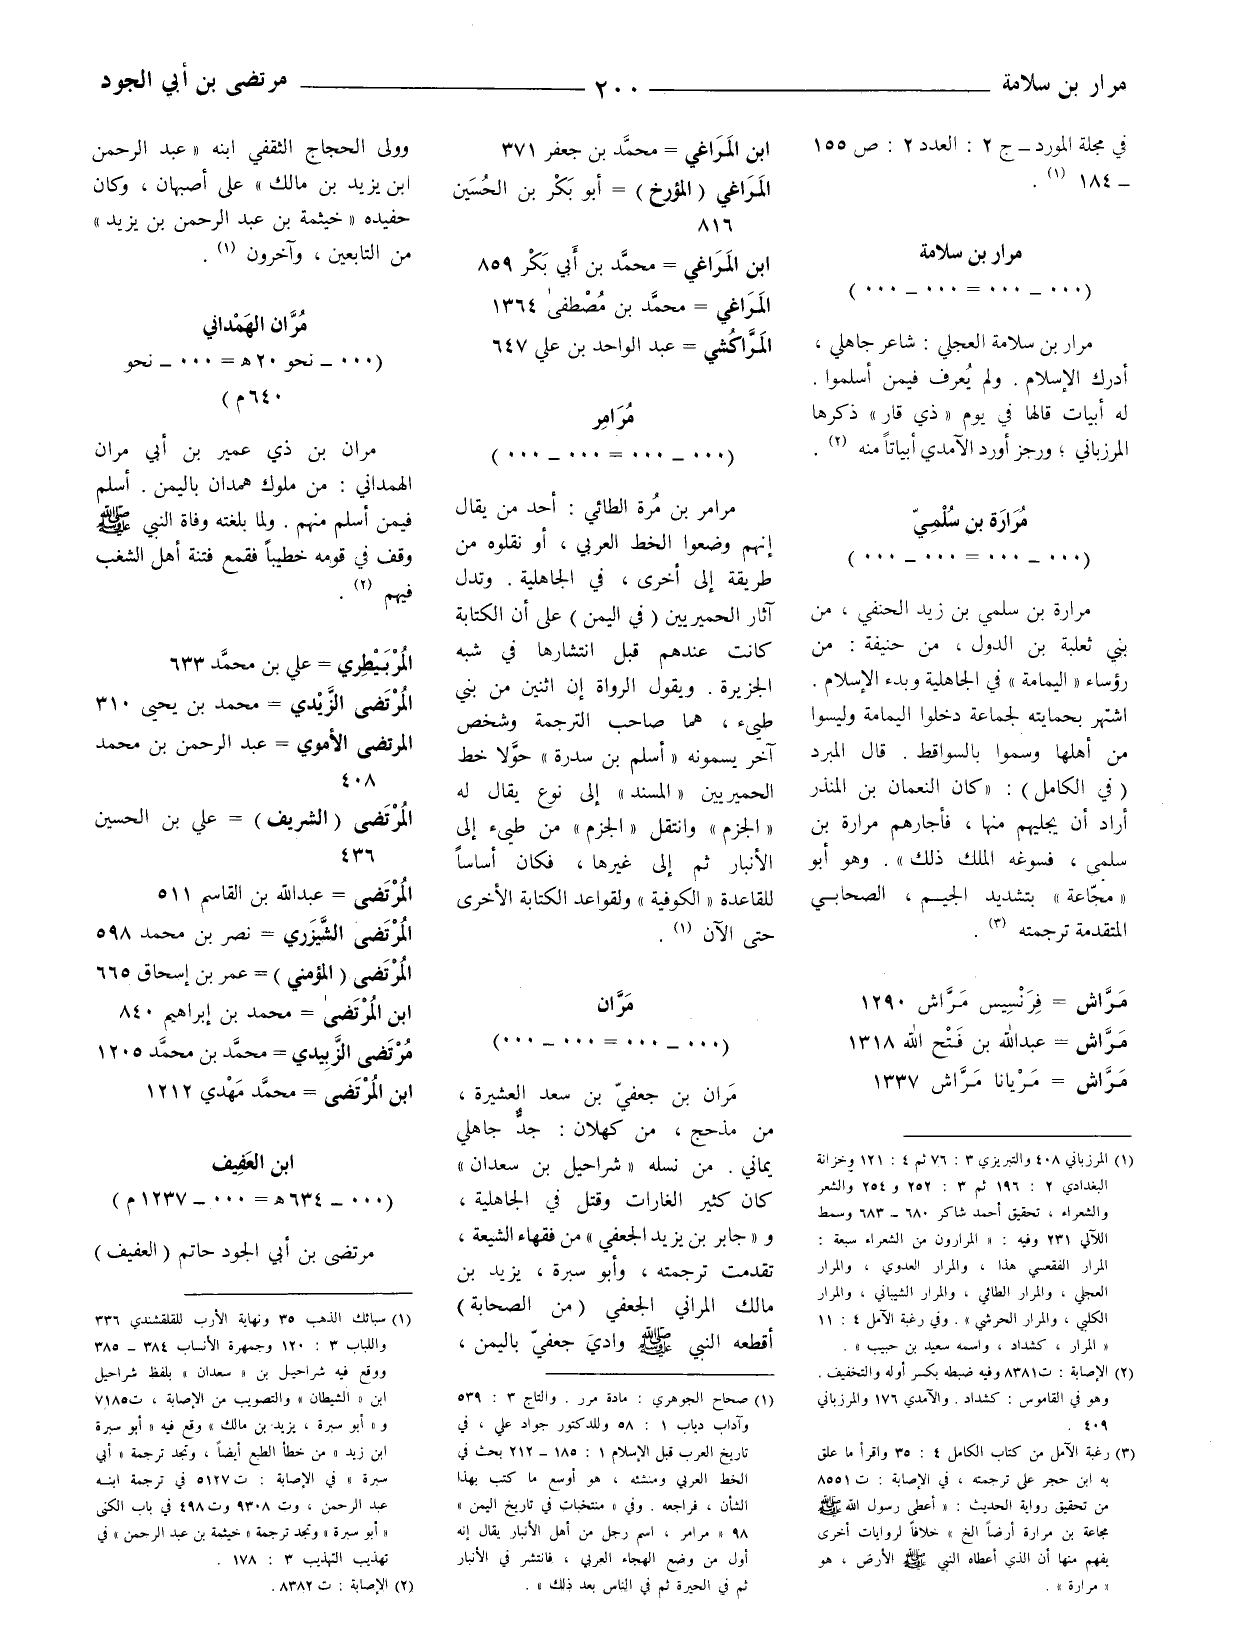 مرار بن سلامة ٢٠٠ مرتضى بن أبي الجود
في مجلة المورد ـ ج ٢ : العدد ٢ : ص ١٥٥
ـ ١٨٤ (١) .
مرار بن سلامة
( ٠٠٠ ـ ٠٠٠ = ٠٠٠ ـ ٠٠٠ )
مرار بن سلامة العجلي : شاعر جاهلي ،
أدرك الإسلام . ولم يُعرف فيمن أسلموا .
له أبيات قالها في يوم « ذي قار » ذكرها
المرزباني ؛ ورجز أورد الآمدي أبياتاً منه (٢) .
مُرَارَة بن سُلْمِيّ
( ٠٠٠ ـ ٠٠٠ = ٠٠٠ ـ ٠٠٠ )
مرارة بن سلمي بن زيد الحنفي ، من
بني ثعلبة بن الدول ، من حنيفة : من
رؤساء « اليمامة » في الجاهلية وبدء الإسلام .
اشتهر بحمايته لجماعة دخلوا اليمامة وليسوا
من أهلها وسموا بالسواقط . قال المبرد
( في الكامل ) : « كان النعمان بن المنذر
أراد أن يجليهم منها ، فأجارهم مرارة بن
سلمى ، فسوغه الملك ذلك » . وهو أبو
« مجّاعة » بتشديد الجيم ، الصحابي
المتقدمة ترجمته (٣) .
مَرَّاش = فِرَنْسِيس مَرَّاش ١٢٩٠
مَرَّاش = عبدالله بن فَتْح الله ١٣١٨
مَرَّاش = مَرْيانا مَرَّاش ١٣٣٧
(١) المرزباني ٤٠٨ والتبريزي ٣ : ٧٦ ثم ٤ : ١٢١ وخزانة
البغدادي ٢ : ١٩٦ ثم ٣ : ٢٥٢ و ٢٥٤ والشعر
والشعراء ، تحقيق أحمد شاكر ٦٨٠ ـ ٦٨٣ وسمط
اللآلي ٢٣١ وفيه : « المرارون من الشعراء سبعة :
المرار الفقعسي هذا ، والمرار العدوي ، والمرار
العجلي ، والمرار الطائي ، والمرار الشيباني ، والمرار
الكلبي ، والمرار الحرشي » . وفي رغبة الآمل ٤ : ١١
« المرار ، كشداد ، واسمه سعيد بن حبيب » .
(٢) الإصابة : ت ٨٣٨١ وفيه ضبطه بكسر أوله والتخفيف .
وهو في القاموس : كشداد . والآمدي ١٧٦ والمرزباني
٤٠٩ .
(٣) رغبة الآمل من كتاب الكامل ٤ : ٣٥ واقرأ ما علق
به ابن حجر على ترجمته ، في الإصابة : ت ٨٥٥١
من تحقيق رواية الحديث : « أعطى رسول الله ﷺ
مجاعة بن مرارة أرضاً الخ » خلافاً لروايات أخرى
يفهم منها أن الذي أعطاه النبي ﷺ الأرض ، هو
« مرارة » .
ابن المَرَاغي = محمَّد بن جعفر ٣٧١
المَرَاغي ( المؤرخ ) = أبو بَكْر بن الحُسَين
٨١٦
ابن المَرَاغي = محمَّد بن أَبي بَكْر ٨٥٩
المَرَاغي = محمَّد بن مُصْطفىٰ ١٣٦٤
المَرَّاكُشي = عبد الواحد بن علي ٦٤٧
مُرَامِر
( ٠٠٠ ـ ٠٠٠ = ٠٠٠ ـ ٠٠٠ )
مرامر بن مُرة الطائي : أحد من يقال
إنهم وضعوا الخط العربي ، أو نقلوه من
طريقة إلى أخرى ، في الجاهلية . وتدل
آثار الحميريين ( في اليمن ) على أن الكتابة
كانت عندهم قبل انتشارها في شبه
الجزيرة . ويقول الرواة إن اثنين من بني
طيىء ، هما صاحب الترجمة وشخص
آخر يسمونه « أسلم بن سدرة » حوَّلا خط
الحميريين « المسند » إلى نوع يقال له
« الجزم » وانتقل « الجزم » من طيىء إلى
الأنبار ثم إلى غيرها ، فكان أساساً
للقاعدة « الكوفية » ولقواعد الكتابة الأخرى
حتى الآن (١) .
مَرَّان
( ٠٠٠ ـ ٠٠٠ = ٠٠٠ ـ ٠٠٠ )
مَران بن جعفيّ بن سعد العشيرة ،
من مذحج ، من كهلان : جدٌّ جاهلي
يماني . من نسله « شراحيل بن سعدان »
كان كثير الغارات وقتل في الجاهلية ،
و « جابر بن يزيد الجعفي » من فقهاء الشيعة ،
تقدمت ترجمته ، وأبو سبرة ، يزيد بن
مالك المراني الجعفي ( من الصحابة )
أقطعه النبي ﷺ واديَ جعفيّ باليمن ،
(١) صحاح الجوهري : مادة مرر . والتاج ٣ : ٥٣٩
وآداب دياب ١ : ٥٨ وللدكتور جواد علي ، في
تاريخ العرب قبل الإسلام ١ : ١٨٥ ـ ٢١٢ بحث في
الخط العربي ومنشئه ، هو أوسع ما كتب بهذا
الشأن ، فراجعه . وفي « منتخبات في تاريخ اليمن »
٩٨ « مرامر ، اسم رجل من أهل الأنبار يقال إنه
أول من وضع الهجاء العربي ، فانتشر في الأنبار
ثم في الحيرة ثم في الناس بعد ذلك » .
وولى الحجاج الثقفي ابنه « عبد الرحمن
ابن يزيد بن مالك » على أصبهان ، وكان
حفيده « خيثمة بن عبد الرحمن بن يزيد »
من التابعين ، وآخرون (١) .
مُرَّان الهَمْداني
( ٠٠٠ ـ نحو ٢٠ ه = ٠٠٠ ـ نحو
٦٤٠ م )
مران بن ذي عمير بن أبي مران
الهمداني : من ملوك همدان باليمن . أسلم
فيمن أسلم منهم . ولما بلغته وفاة النبي ﷺ
وقف في قومه خطيباً فقمع فتنة أهل الشغب
فيهم (٢) .
المُرْبَيْطِري = علي بن محمَّد ٦٣٣
المُرْتَضى الزَّيْدي = محمد بن يحيى ٣١٠
المرتضى الأموي = عبد الرحمن بن محمد
٤٠٨
المُرْتَضى ( الشريف ) = علي بن الحسين
٤٣٦
المُرْتَضى = عبدالله بن القاسم ٥١١
المُرْتَضى الشَّيْزَري = نصر بن محمد ٥٩٨
المُرْتَضى ( المؤمني ) = عمر بن إسحاق ٦٦٥
ابن المُرْتَضىٰ = محمد بن إبراهيم ٨٤٠
مُرْتَضى الزَّبِيدي = محمَّد بن محمَّد ١٢٠٥
ابن المُرْتَضى = محمَّد مَهْدي ١٢١٢
ابن العَفِيف
( ٠٠٠ ـ ٦٣٤ ه = ٠٠٠ ـ ١٢٣٧ م )
مرتضى بن أبي الجود حاتم ( العفيف )
(١) سبائك الذهب ٣٥ ونهاية الأرب للقلقشندي ٣٣٦
واللباب ٣ : ١٢٠ وجمهرة الأنساب ٣٨٤ ـ ٣٨٥
ووقع فيه شراحيل بن « سعدان » بلفظ شراحيل
ابن « الشيطان » والتصويب من الإصابة ، ت ٧١٨٥
و « أبو سبرة ، يزيد بن مالك » وقع فيه « أبو سبرة
ابن زيد » من خطأ الطبع أيضاً ، وتجد ترجمة « أبي
سبرة » في الإصابة : ت ٥١٢٧ في ترجمة ابنه
عبد الرحمن ، وت ٩٣٠٨ وت ٤٩٨ في باب الكنى
« أبو سبرة » وتجد ترجمة « خيثمة بن عبد الرحمن » في
تهذيب التهذيب ٣ : ١٧٨ .
(٢) الإصابة : ت ٨٣٨٢ .